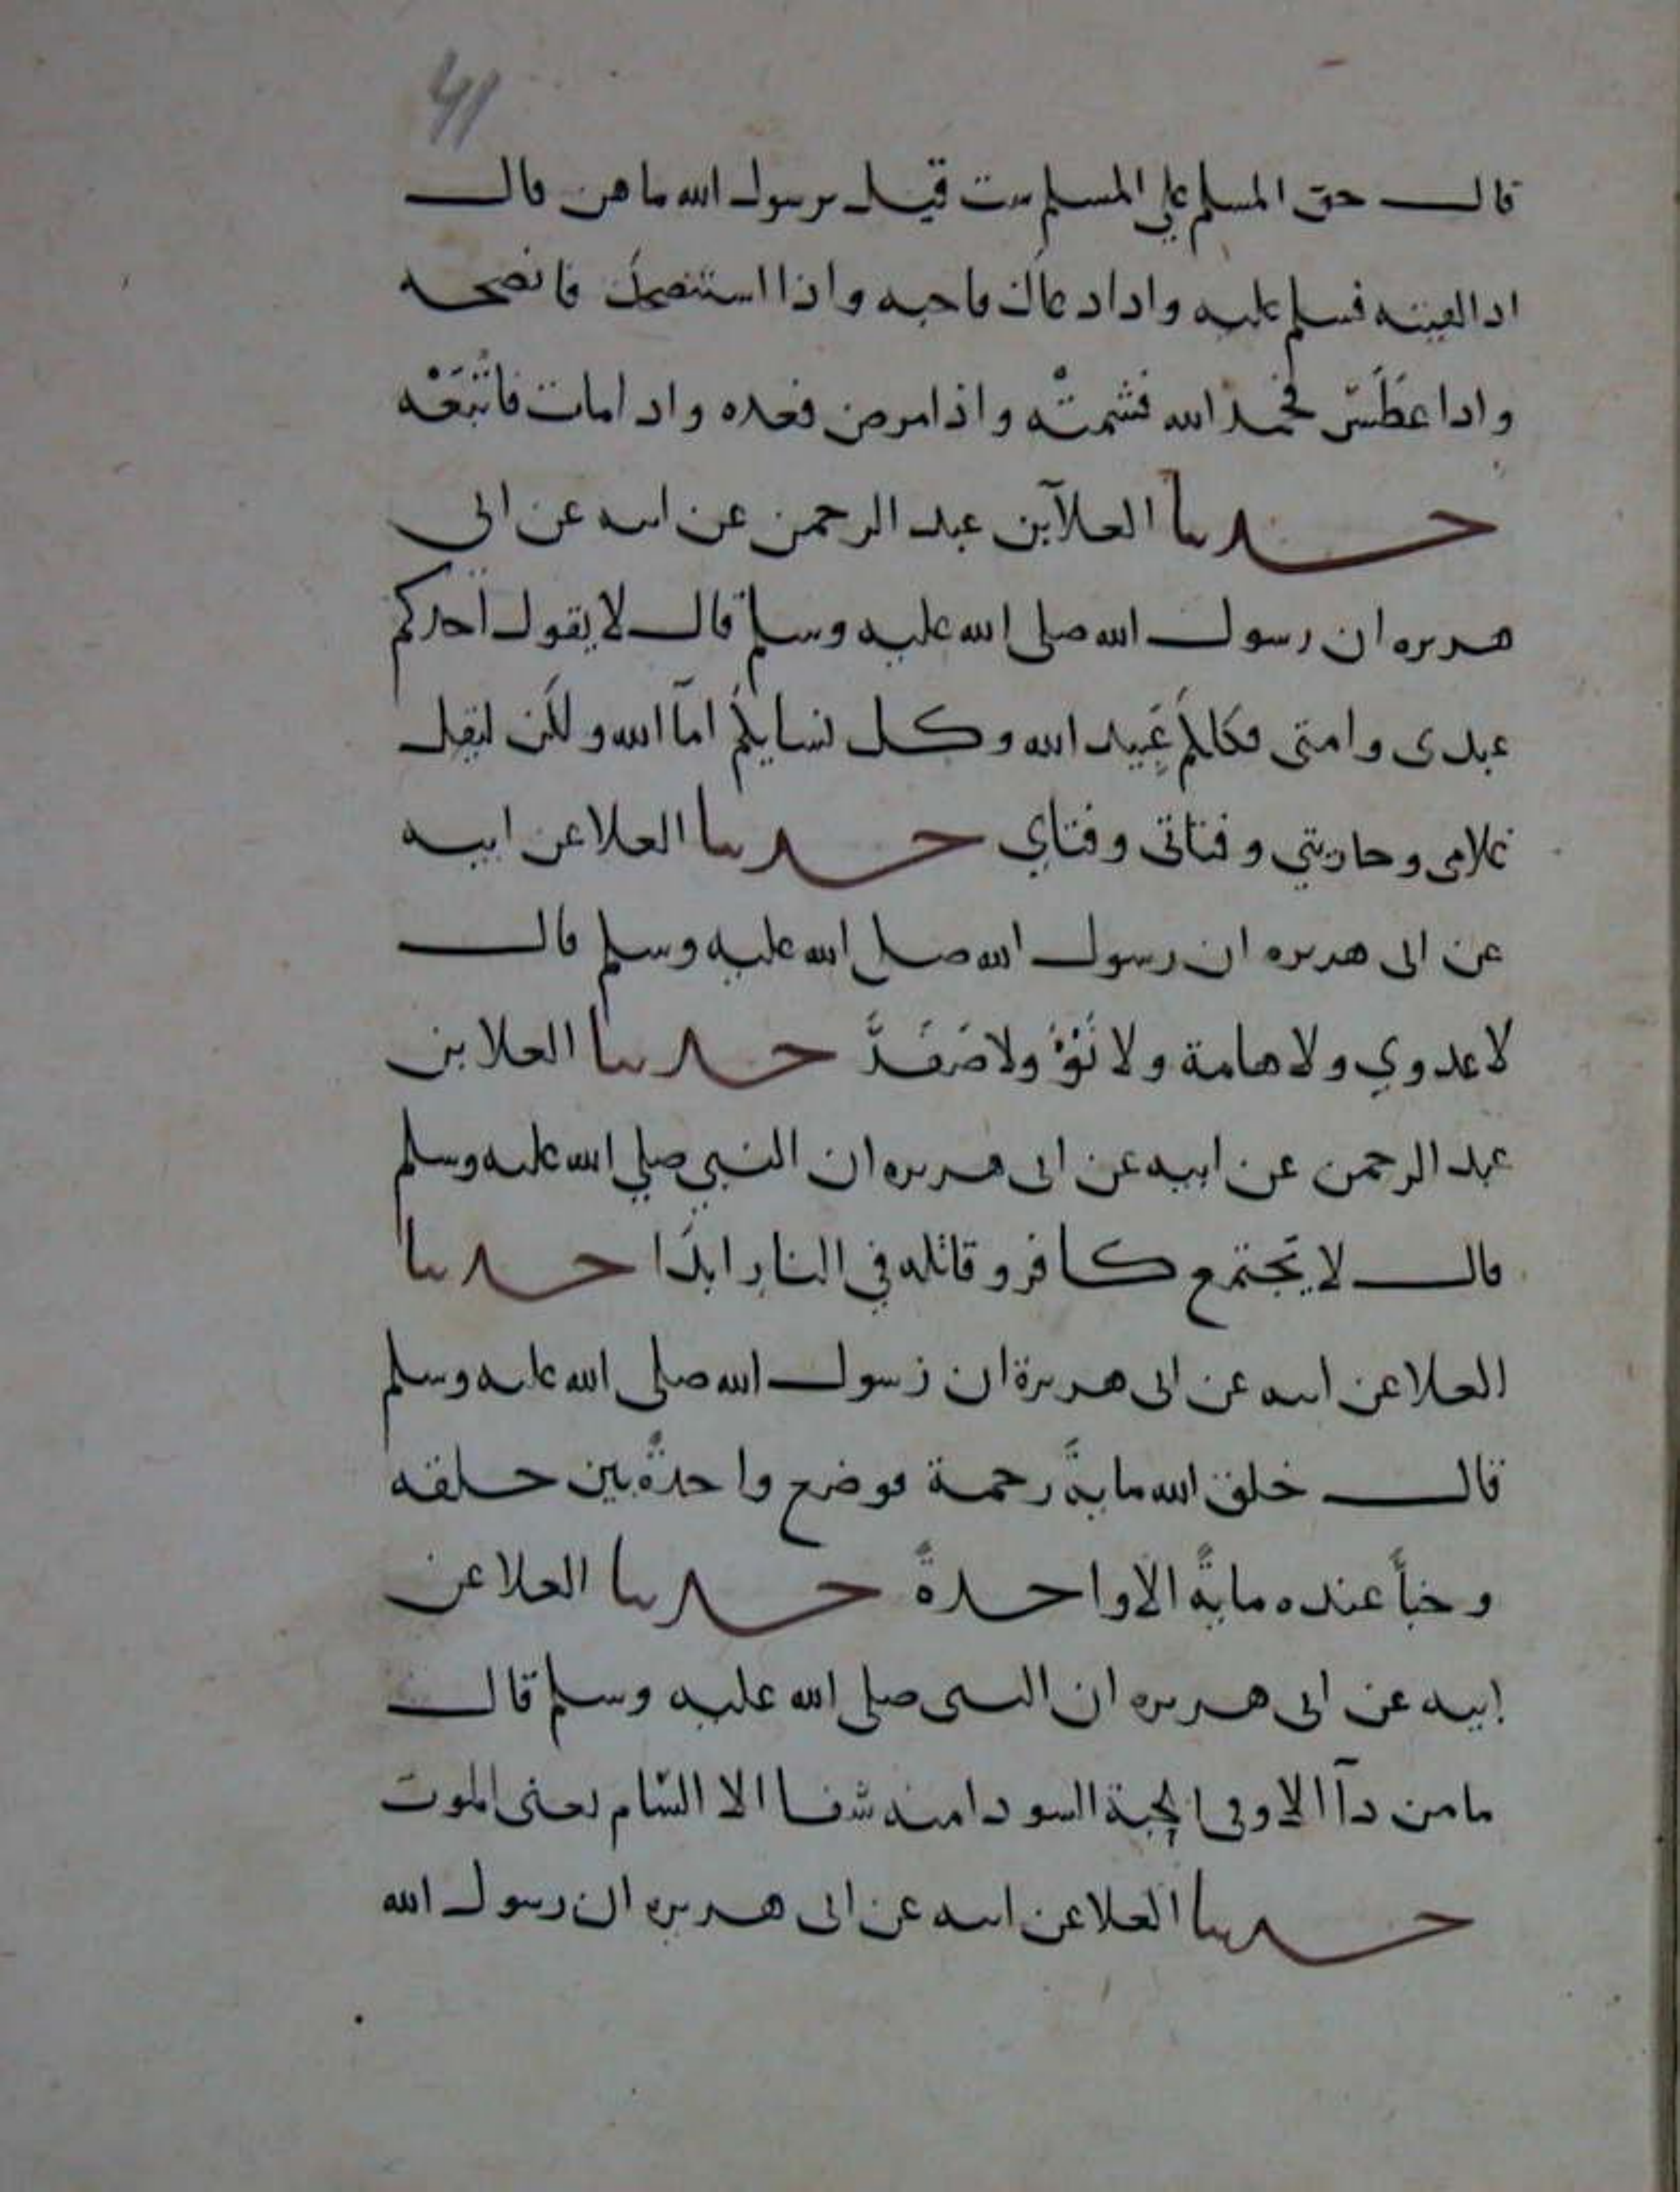 41
قال حق المسلم على المسلم ست قيل يرسول الله ما هن قال
اذا لقيته فسلم عليه واذا دعاك فاجبه واذا استنصحك فانصحه
واذا عَطَسَ فحمد الله فشمتْه واذا مرض فعده واذا مات فاتْبَعْه
حدثنا العلآ بن عبد الرحمن عن ابيه عن ابي
هريره ان رسول الله صلى الله عليه وسلم قال لا يقول احدكم
عبدى وامتى فكلكم عَبِيد الله وكل نسايكم امآ الله ولكن ليقل
غلامى وجاريتي وفتاتى وفتاي حدثنا العلا عن ابيه
عن ابى هريره ان رسول الله صلى الله عليه وسلم قال
لا عدوي ولا هامة ولا نَوْءُ ولا صَفَرَ حدثنا العلا بن
عبد الرحمن عن ابيه عن ابى هريره ان النبي صلي الله عليه وسلم
قال لا يَجتمع كافر وقاتله في النار ابدًا حدثنا
العلا عن ابيه عن ابى هريرة ان رسول الله صلى الله عليه وسلم
قال خلق الله ماية رحمة فوضع واحدةً بين خلقه
وخبأ عنده مايةً الا واحدةً حدثنا العلا عن
ابيه عن ابى هريره ان النبى صلى الله عليه وسلم قال
ما من دآ الا وفى الحبة السودا منه شفا الا السّام يعنى الموت
حدثنا العلا عن ابيه عن ابى هريره ان رسول الله